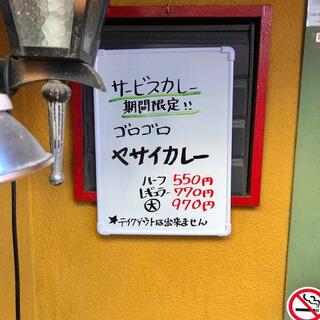 サービスカレー
期間限定!!
ゴロゴロ
ヤサイカレー
ハーフ 550円
レギュラー 770円
大 970円
★テイクアウトは出来ません